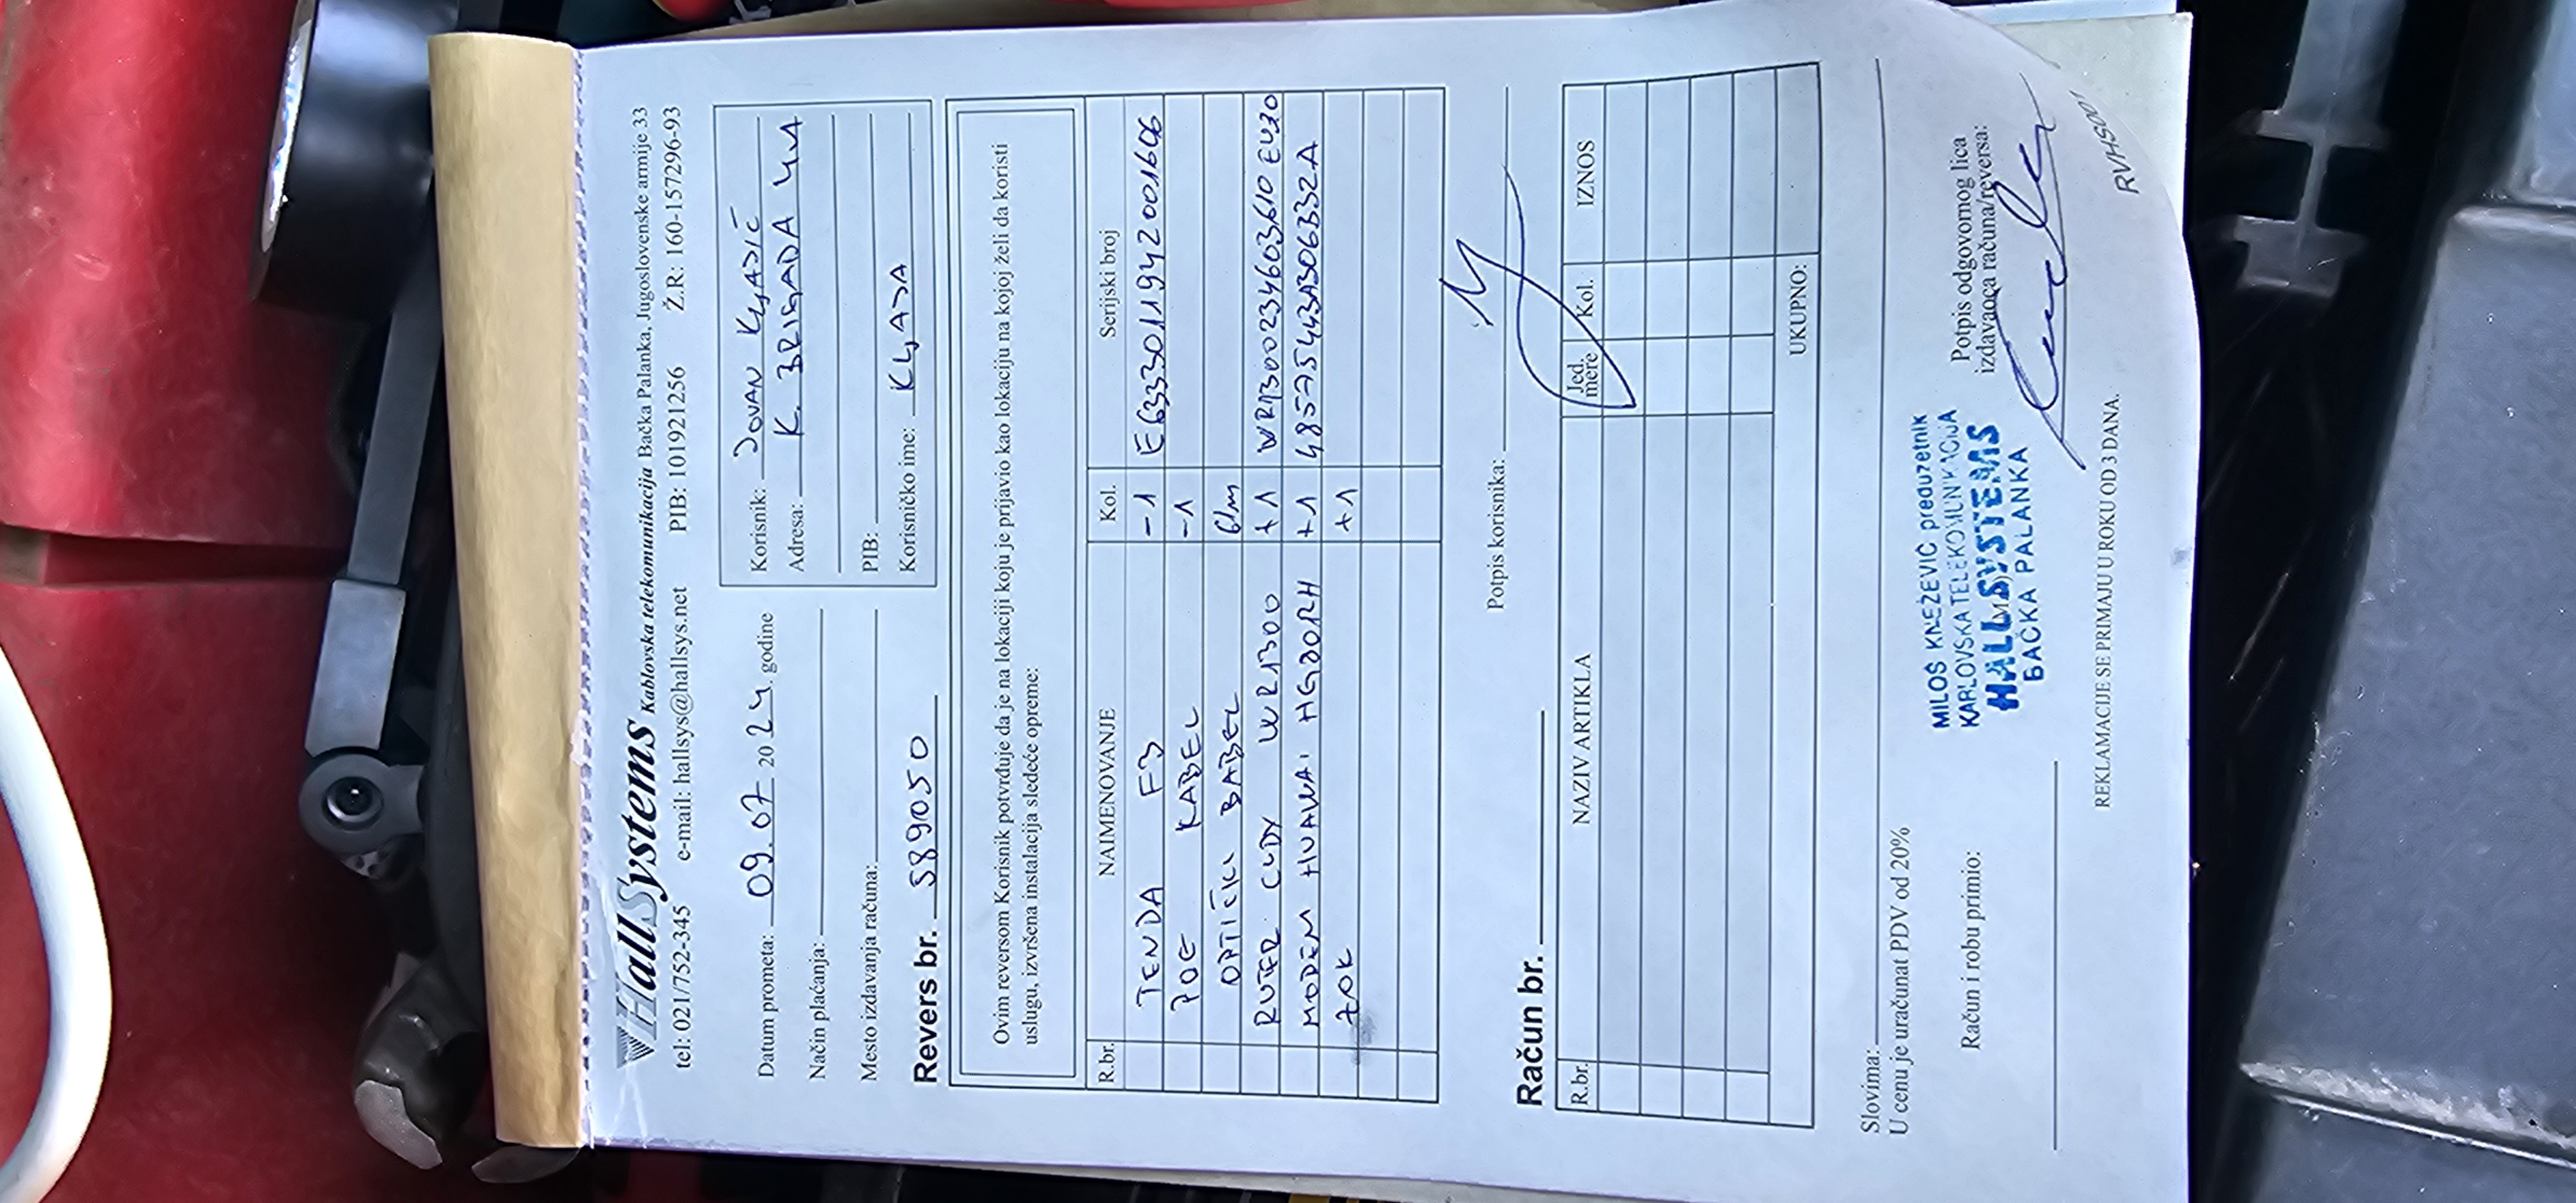 HallSystems Kablovska telekomunikacija Bačka Palanka, Jugoslovenske armije 33
tel: 021/752-345 e-mail: hallsys@hallsys.net PIB: 101921256 Ž.R: 160-157296-93
Datum prometa: 09.07 2024. godine
Način plaćanja:
Mesto izdavanja računa:
Korisnik: JOVAN KLJAJIĆ
Adresa: K. BRIGADA 44A
PIB:
Korisničko ime: KLJAJA
Revers br. 589050
Ovim reversom Korisnik potvrđuje da je na lokaciji koju je prijavio kao lokaciju na kojoj želi da koristi
uslugu, izvršena instalacija sledeće opreme:
R.br. NAIMENOVANJE Kol. Serijski broj
TENDA F3 -1 E6333011942001606
POE KABEL -1
OPTIČKI BABEL 61m
RUTER CUDY WR1300 +1 WR1300234603610EU30
MODEM HUAWAI +1 48575443A306332A
+1
Potpis korisnika:
Račun br.
R.br. NAZIV ARTIKLA Jed. mere Kol. IZNOS
UKUPNO:
Slovima:
U cenu je uračunat PDV od 20%
Račun i robu primio:
MILOS KNEŽEVIĆ preduzetnik
KARLOVSKA TELEKOMUNIKACIJA
HALL SYSTEMS
BAČKA PALANKA
Potpis odgovornog lica
izdavaoca računa/reversa:
REKLAMACIJE SE PRIMAJU U ROKU OD 3 DANA.
RVHS001